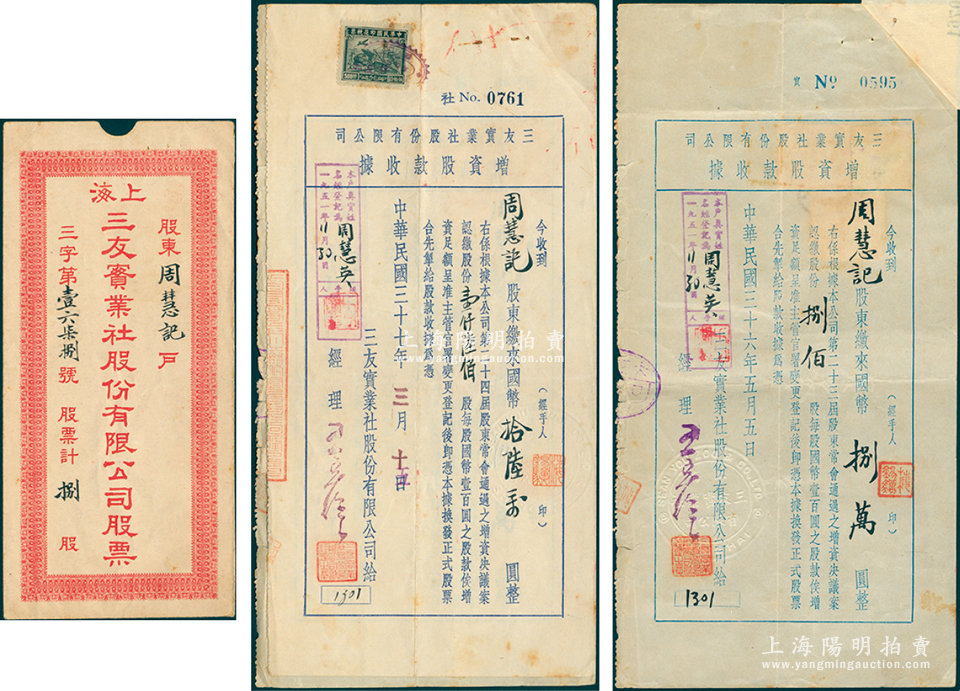 上海
三友實業社股份有限公司股票
股東周慧記戶
三字第壹六柒捌號 股票計 捌 股
中華民國印花稅票
社 No. 0761
三友實業社股份有限公司
增資股款收據
今收到
周慧記 股東繳來國幣 拾陸萬 圓整
(經手人 印)
右係根據本公司第二十四屆股東常會通過之增資決議案
認繳股份壹仟陸佰 股每股國幣壹百圓之股款俟增
資足額呈准主管官署變更登記後即憑本據換發正式股票
合先掣給股款收據爲憑
三友實業社股份有限公司給
經理
中華民國三十七年 三月 十五日
本戶真實姓名經登記爲周慧英
一九五一年11月30日
1301
實 No 0595
三友實業社股份有限公司
增資股款收據
今收到
周慧記 股東繳來國幣 捌萬 圓整
(經手人 印)
右係根據本公司第二十三屆股東常會通過之增資決議案
認繳股份 捌佰 股每股國幣壹百圓之股款俟增
資足額呈准主管官署變更登記後即憑本據換發正式股票
合先掣給股款收據爲憑
三友實業社股份有限公司給
經理
中華民國三十六年五月五日
本戶真實姓名經登記爲周慧英
一九五一年11月30日
1301
上海陽明拍賣
www.yangmingauction.com
上海陽明拍賣
www.yangmingauction.com